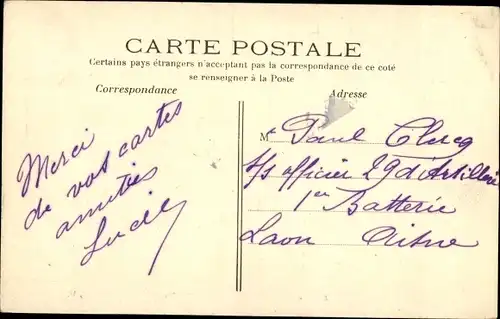 CARTE POSTALE
Certains pays étrangers n'acceptant pas la correspondance de ce coté
se renseigner à la Poste
Correspondance
Adresse
Merci
de vos cartes
amitiés
Lucie
M Paul Clercq
s/s officier 29 d'Artillerie
1er Batterie
Laon Aisne